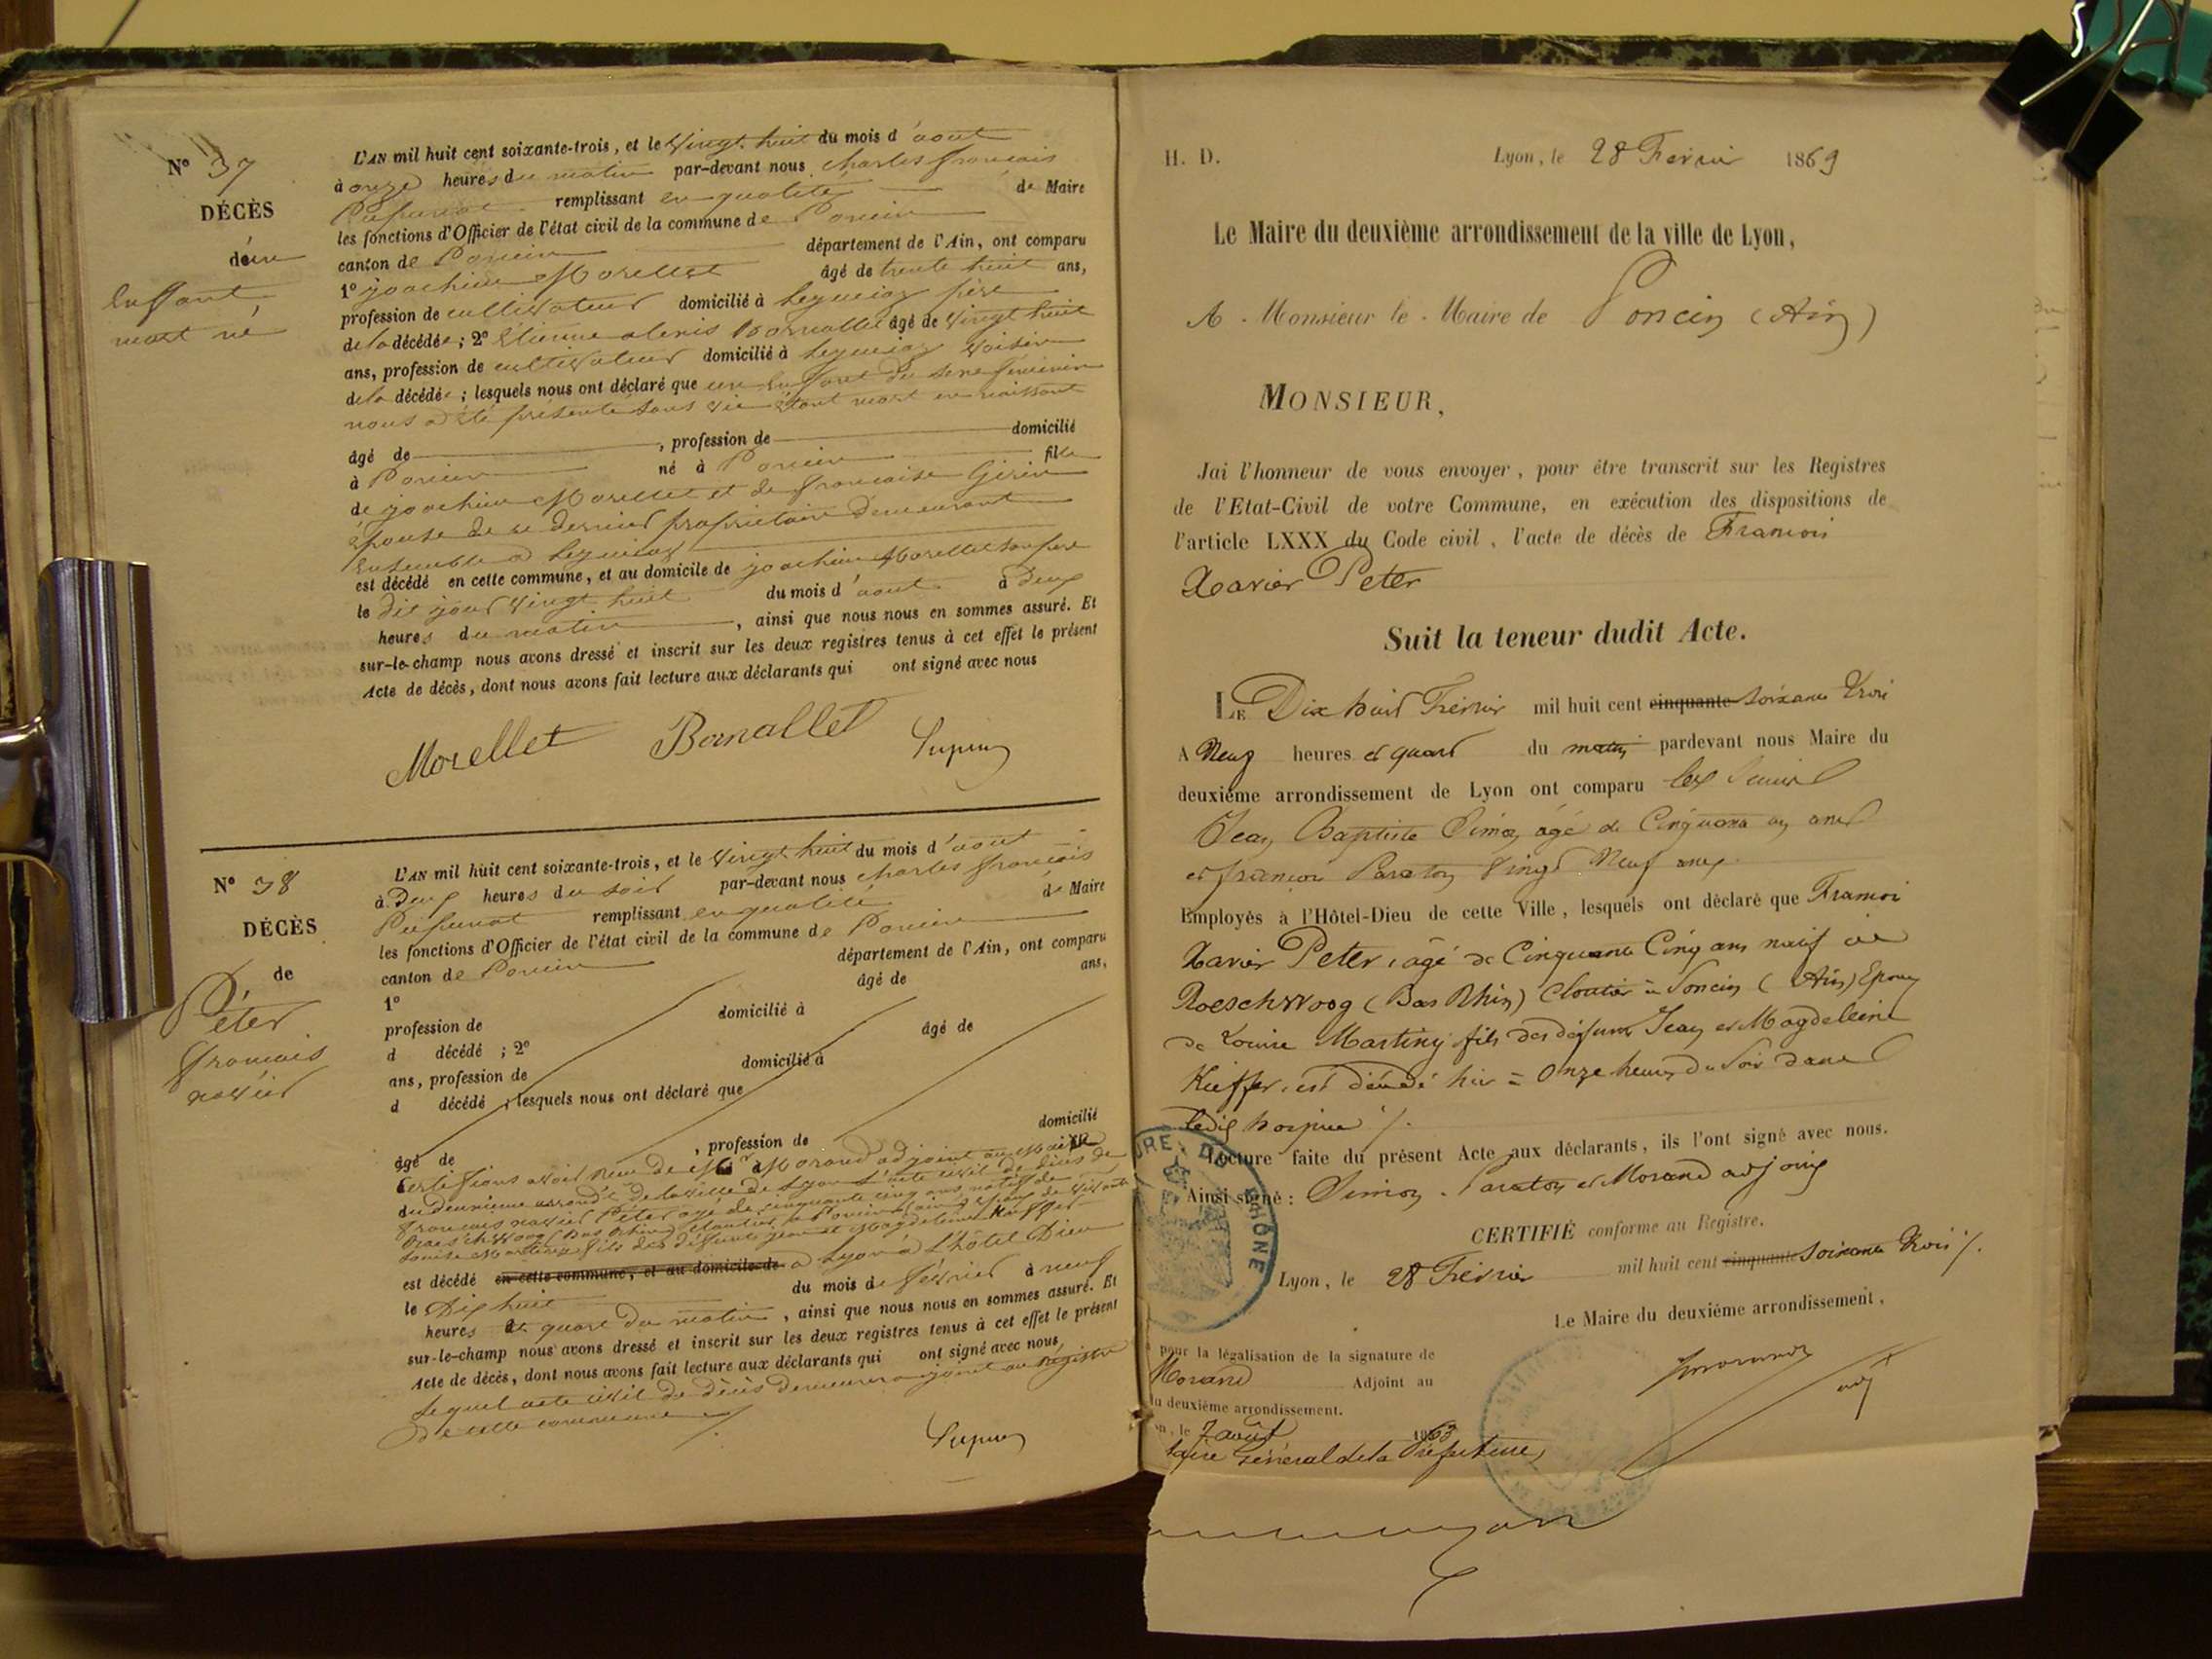 N° 37
DÉCÈS
d'un
Enffant
mort né
L'AN mil huit cent soixante-trois, et le Vingt huit du mois d'aout
à onze heures du matin par-devant nous charles francois
remplissant en qualité de Maire
les fonctions d'Officier de l'état civil de la commune de Poncin
canton de Poncin département de l'Ain, ont comparu
1° joachim Morellet âgé de trente huit ans,
profession de cultivateur domicilié à Leymiaz père
de la décédée; 2° Etienne alexis Bornallet âgé de Vingt huit
ans, profession de cultivateur domicilié à Leymiaz voisin
de la décédée; lesquels nous ont déclaré que un Enffant du sexe féminin
nous a été présenté sans vie étant mort en naissant
âgé de , profession de domicilié
à Poncin né à Poncin fille
de joachim Morellet et de francoise Girin
épouse de ce dernier propriétaire demeurant
Ensemble a Leymiaz
est décédé en cette commune, et au domicile de joachim Morellet son père
le dit jour Vingt huit du mois d'aout à Deux
heures du matin , ainsi que nous nous en sommes assuré. Et
sur-le-champ nous avons dressé et inscrit sur les deux registres tenus à cet effet le présent
Acte de décès, dont nous avons fait lecture aux déclarants qui ont signé avec nous
Morellet Bornallet
N° 38
DÉCÈS
de
Péter
francois
xavier
L'AN mil huit cent soixante-trois, et le Vingt huit du mois d'aout
à Deux heures du soir par-devant nous charles francois
remplissant en qualité de Maire
les fonctions d'Officier de l'état civil de la commune de Poncin
canton de Poncin département de l'Ain, ont comparu
1° âgé de ans,
profession de domicilié à
d décédé ; 2° âgé de
ans, profession de domicilié à
d décédé ; lesquels nous ont déclaré que
âgé de , profession de domicilié
Certifions avoir reçu de Mr Morand adjoint au Maire
du deuxième arrondt de la ville de Lyon l'acte civil de décès de
francois xavier Péter agé de cinquante cinq ans natif de
Roeschwoog (Bas Rhin) cloutier a Poncin (ain) époux de
Louise Martiny fils des défunts jean et Magdeleine Kieffer
est décédé en cette commune, et au domicile de a Lyon à l'hôtel Dieu
le Dix huit du mois de février à neuf
heures et quart du matin , ainsi que nous nous en sommes assuré. Et
sur-le-champ nous avons dressé et inscrit sur les deux registres tenus à cet effet le présent
Acte de décès, dont nous avons fait lecture aux déclarants qui ont signé avec nous,
Lequel acte civil de décès demeurera joint au Régistre
de cette commune
H. D. Lyon, le 28 Fevrier 1863
Le Maire du deuxième arrondissement de la ville de Lyon,
A Monsieur le Maire de Poncin (Ain)
MONSIEUR,
Jai l'honneur de vous envoyer, pour être transcrit sur les Registres
de l'Etat-Civil de votre Commune, en exécution des dispositions de
l'article LXXX du Code civil, l'acte de décès de Francois
Xavier Peter
Suit la teneur dudit Acte.
LE Dix huit Fevrier mil huit cent cinquante soixante trois
A Neuf heures et quart du matin pardevant nous Maire du
deuxième arrondissement de Lyon ont comparu les Sieurs
Jean Baptiste Simon agé de Cinquante un ans
et francois Paraton Vingt Neuf ans
Employés à l'Hôtel-Dieu de cette Ville, lesquels ont déclaré que Francois
Xavier Peter, agé de Cinquante Cinq ans natif de
Roeschwoog (Bas Rhin) Cloutier à Poncin (Ain) Epoux
de Louise Martiny fils des défunts Jean et Magdeleine
Kieffer, est décédé hier à Onze heures du Soir dans
ledit hospice
Lecture faite du présent Acte aux déclarants, ils l'ont signé avec nous.
Ainsi signé : Simon, Paraton et Morand adjoint
CERTIFIÉ conforme au Registre.
Lyon, le 28 Fevrier mil huit cent cinquante Soixante trois
Le Maire du deuxième arrondissement,
pour la légalisation de la signature de
Morand Adjoint au
du deuxième arrondissement.
le 7 août 1863
Général de la Préfecture,
RHÔNE